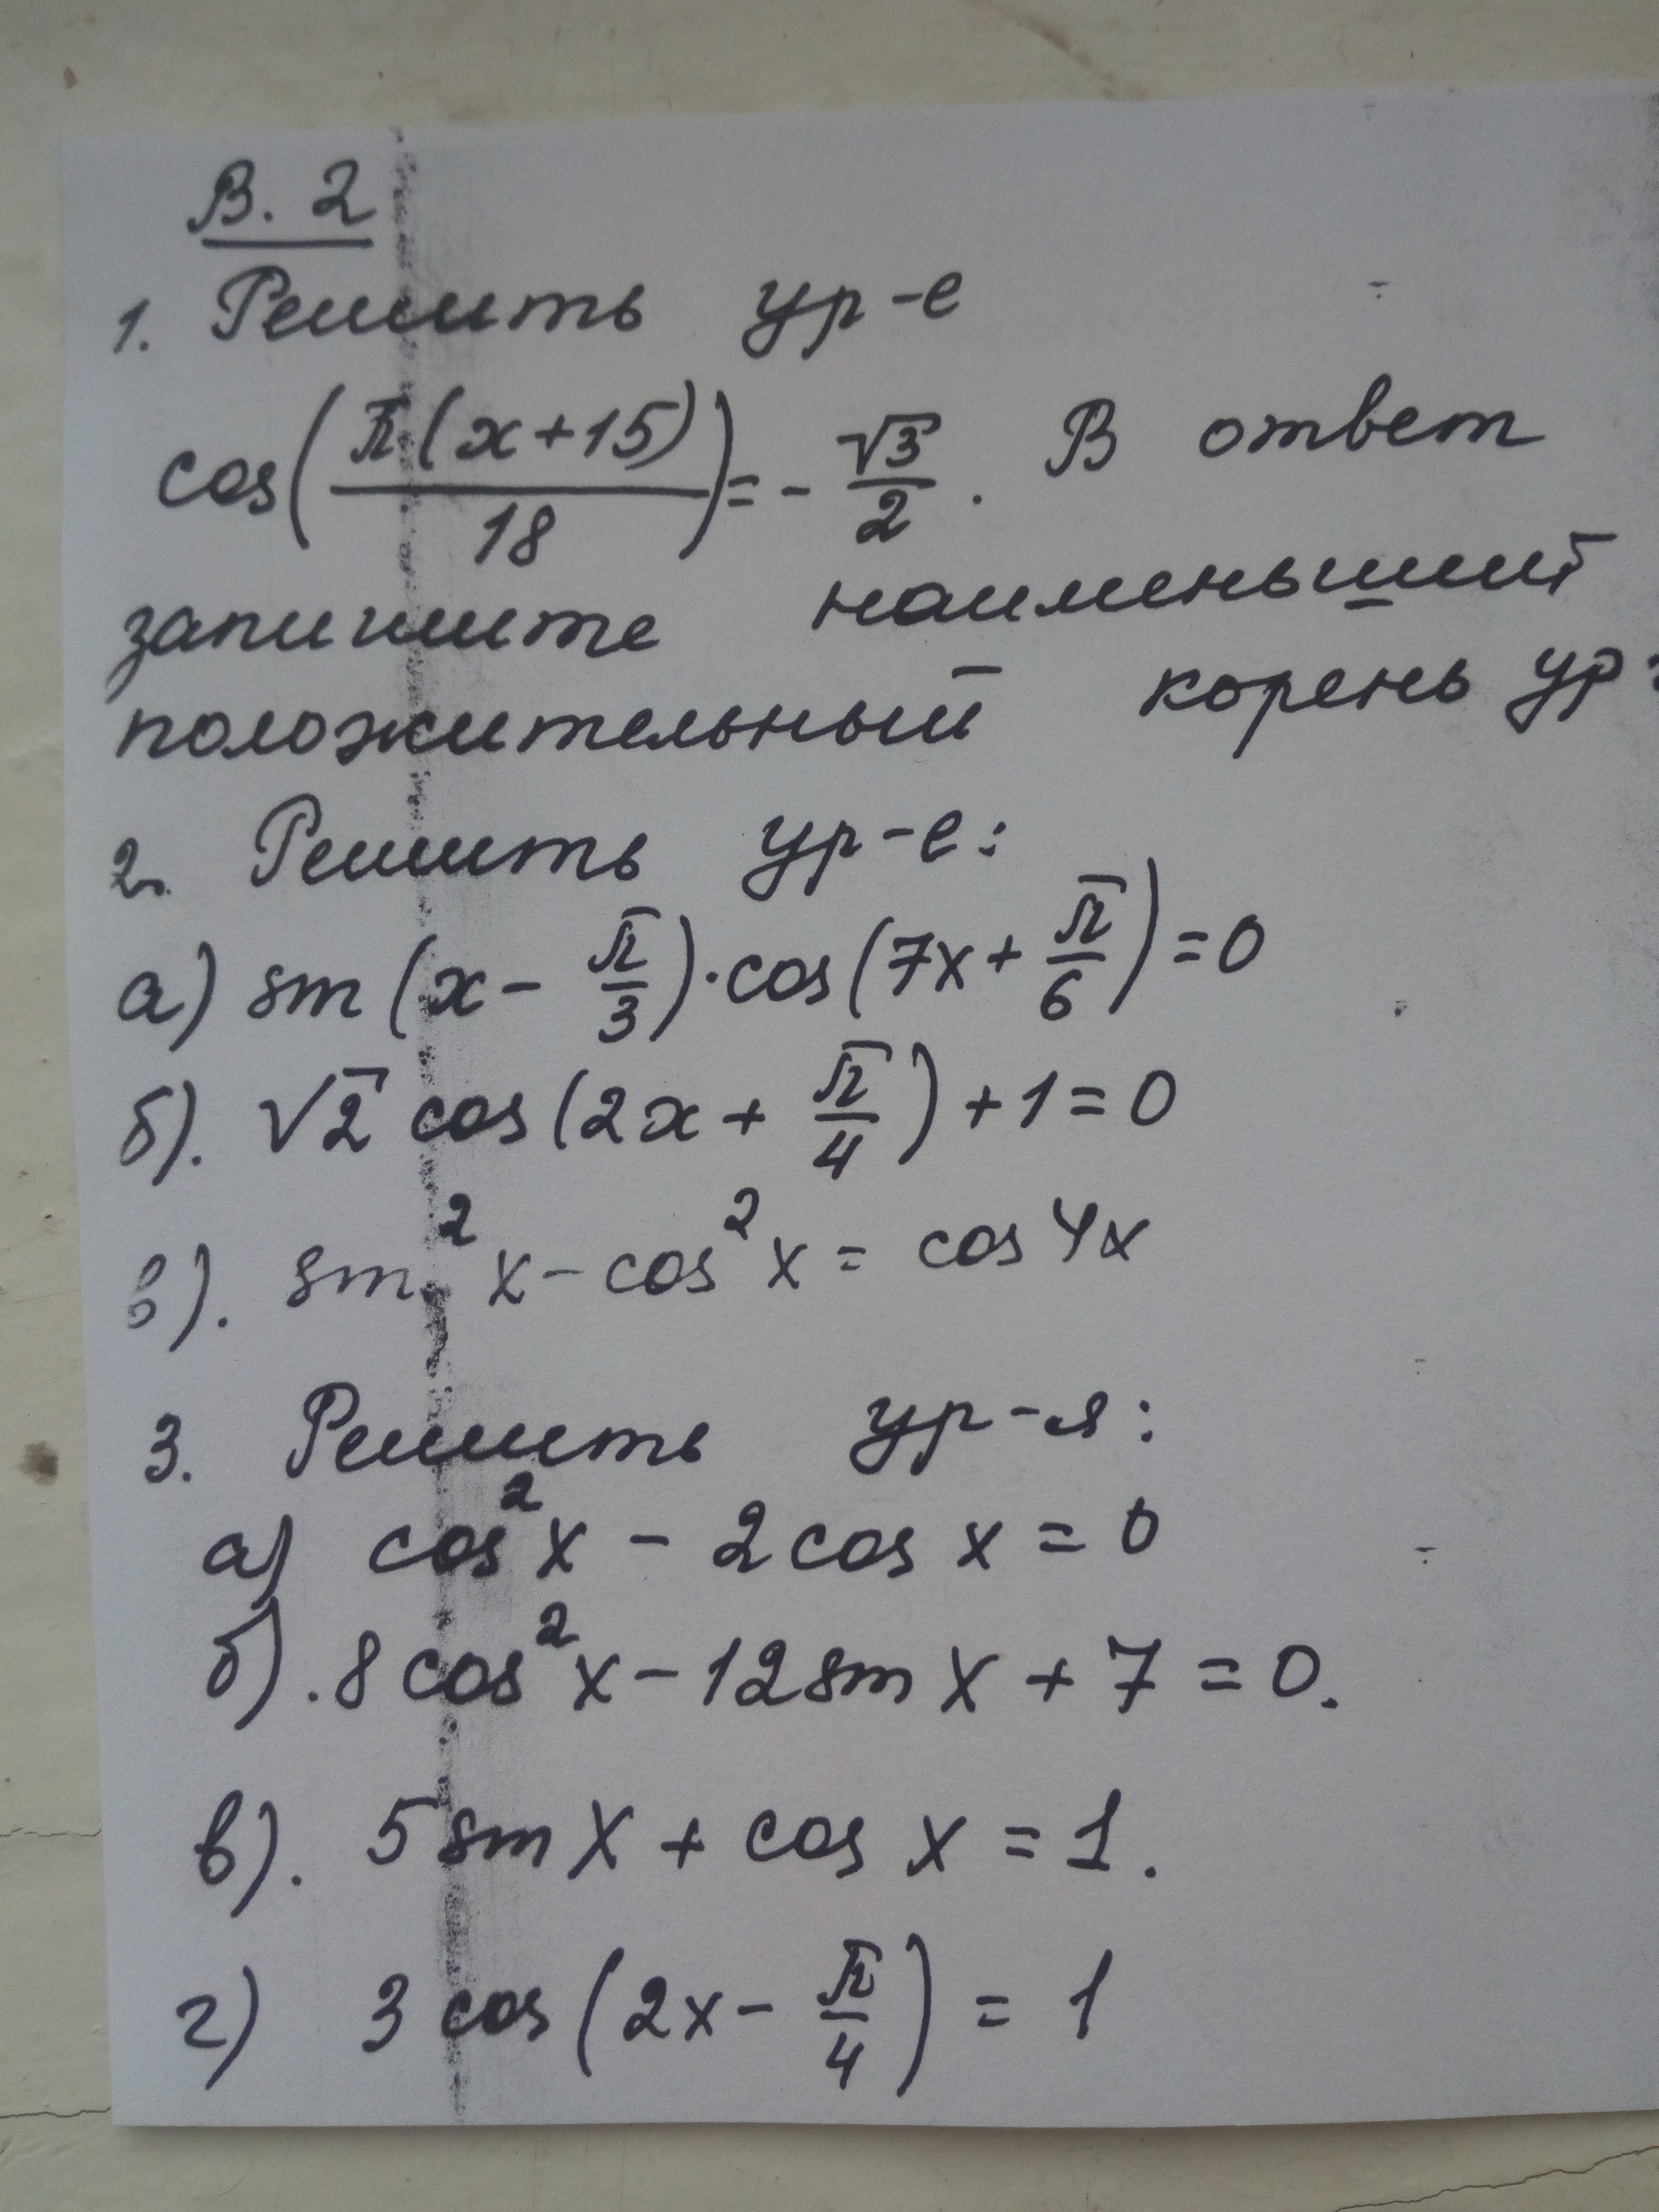 В. 2
1. Решить ур-е
cos(π(x+15)/18) = -√3/2. В ответ
запишите наименьший
положительный корень ур
2. Решить ур-е:
а) sin(x - π/3)·cos(7x + π/6) = 0
б). √2 cos(2x + π/4) + 1 = 0
в). sin²x - cos²x = cos4x
3. Решить ур-я:
а) cos²x - 2cos x = 0
б). 8cos²x - 12sin x + 7 = 0.
в). 5sin x + cos x = 1.
г) 3 cos(2x - π/4) = 1